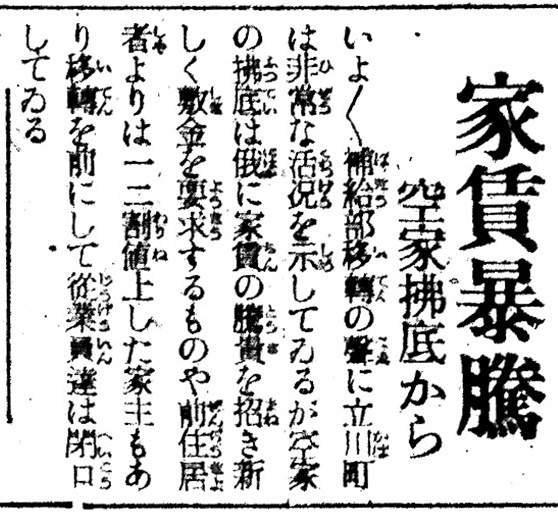 家賃暴騰
空家拂底から
いよ〱補給部移轉の聲に立川町
は非常な活況を示してゐるが空家
の拂底は俄に家賃の騰貴を招き新
しく敷金を要求するものや前住居
者よりは一二割値上した家主もあ
り移轉を前にして從業員達は閉口
してゐる